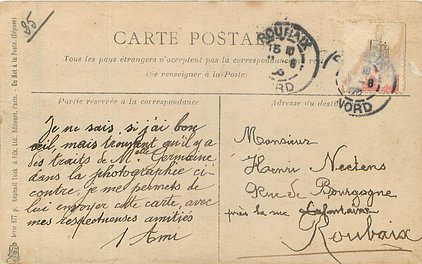 35
CARTE POSTALE
Tous les pays étrangers n'acceptent pas la correspondance
(Se renseigner à la Poste)
ROUBAIX
NORD
NORD
Partie réservée à la correspondance
Adresse du
Je ne sais si j'ai bon
œil, mais trouvant qu'il y a
les traits de Melle Germaine
dans la photographie ci-
contre, je me permets de
lui envoyer cette carte, avec
mes respectueuses amitiés
1 Ami
Monsieur
Henri Nectens
Rue de Bourgogne
près la rue Lafontaine
Roubaix
Série 677 p. Raphael Tuck & fils, Ltd. Editeurs, Paris. - Un Mot à la Poste. (Déposé)